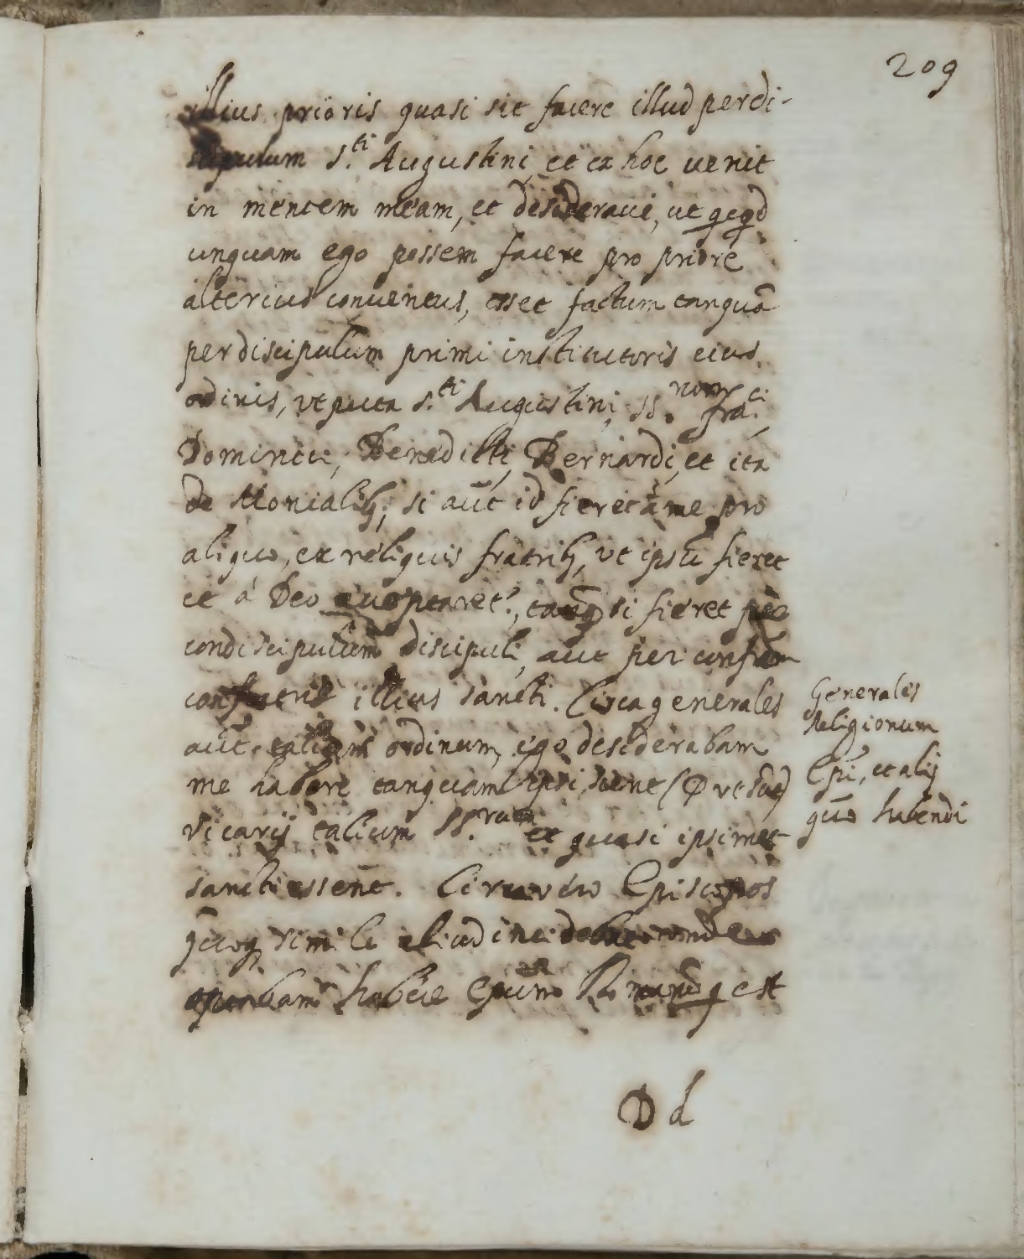 209
illius prioris quasi sit facere illud perdi-
scipulum s.ti Augustini, et ex hoc uenit
in mentem meam, et desideraui, ut qcqd
unquam ego possem facere pro priore
alterius conuentus, esset factum tanquā
per discipulum primi institutoris eius
ordinis, ut puta s.ti Augustini, SS.
Dominici, Benedicti, Bernardi, et ita
de Monialib; si aūt id fieret à me pro
aliquo, ex reliquis fratrib, ut ipsū fieret
et à Deo, si fieret per
condiscipulum discipuli, aut per
illius sancti. Circa generales
aūt talium ordinum, ego desiderabam
me habere tanquam ipsi sient
vicarij talium SS.rum et quasi ipsimet
sancti essent. Circa vero Episcopos
simile aliud
optabam habere Epūm Romanū q est
Generales
Religionum
Epi, et alij
quō habendi
D d